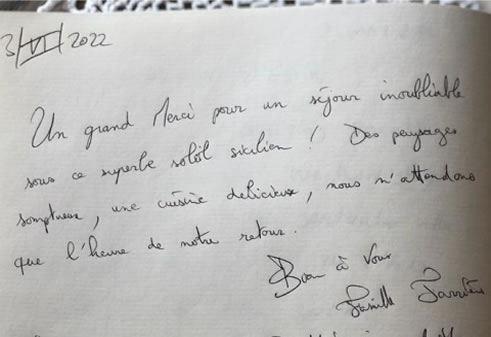 3/VI/2022
Un grand Merci pour un séjour inoubliable
sous ce superbe soleil sicilien ! Des paysages
somptueux, une cuisine delicieuse, nous n'attendons
que l'heure de notre retour.
Bien à vous
Famille